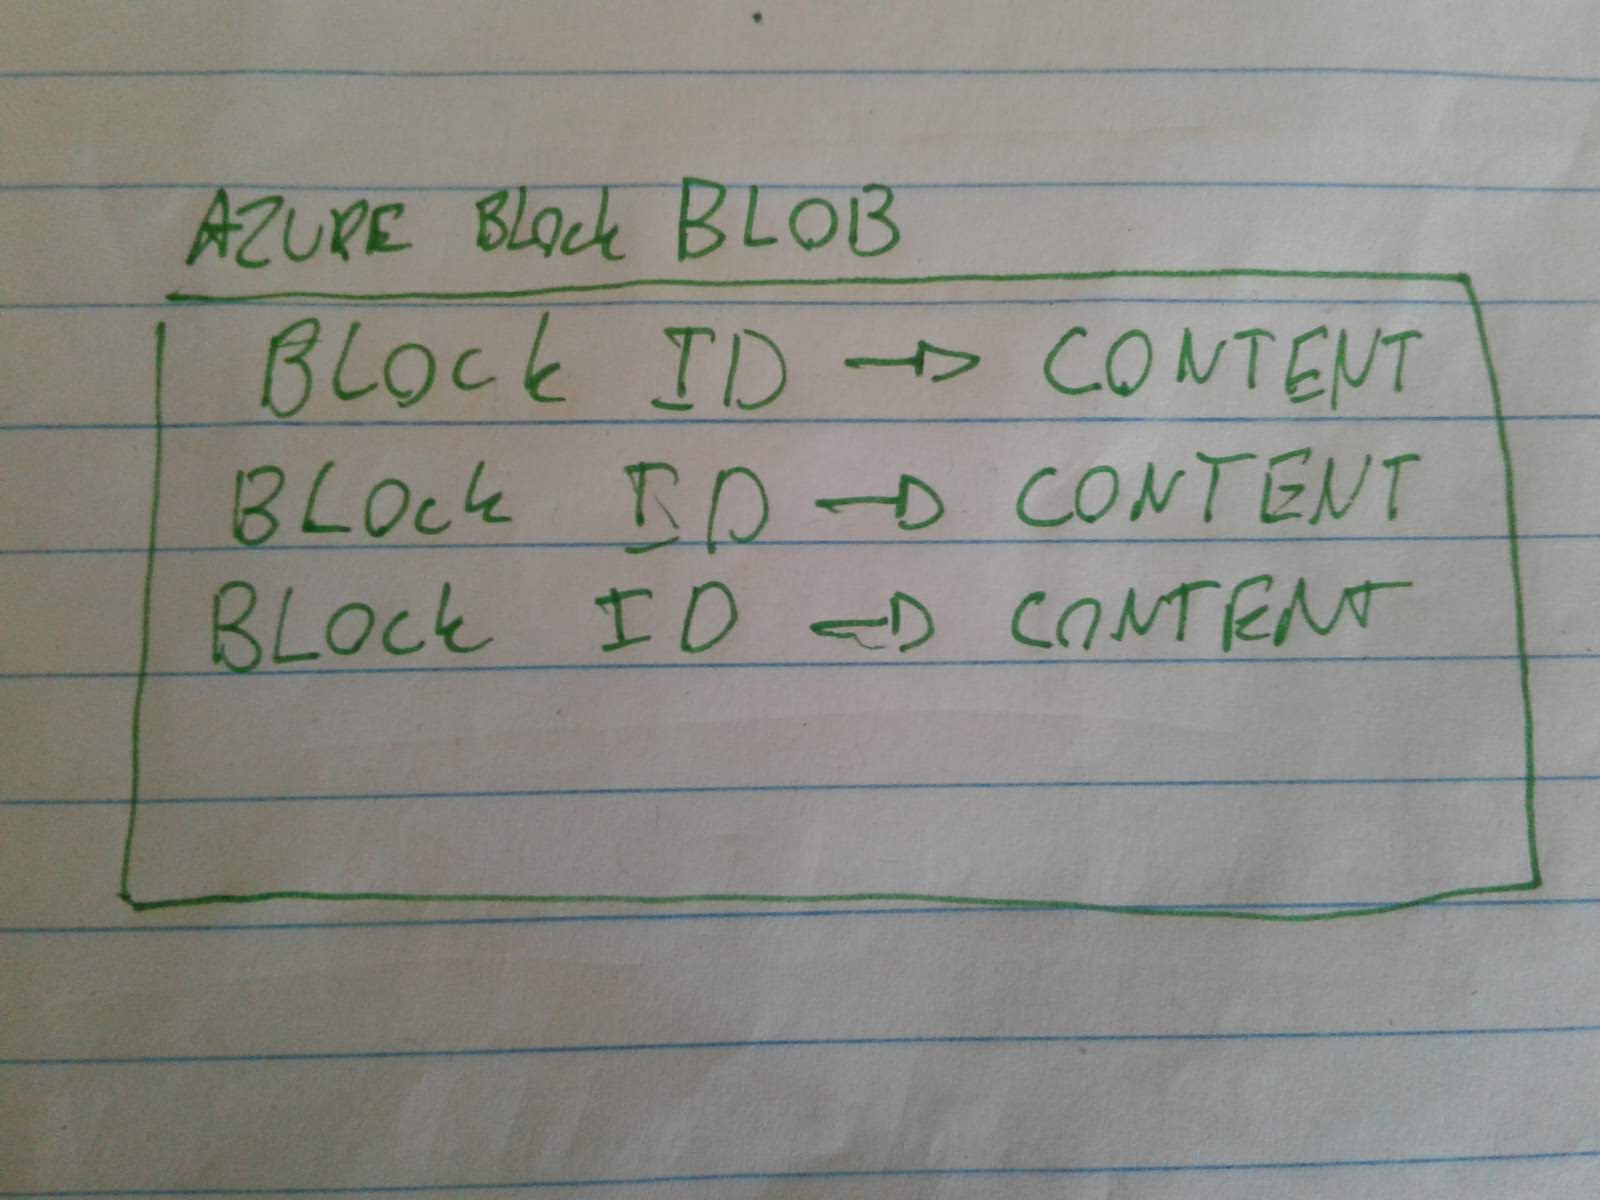 AZURE Block BLOB
BLock ID → CONTENT
BLock ID → CONTENT
BLock ID → CONTENT